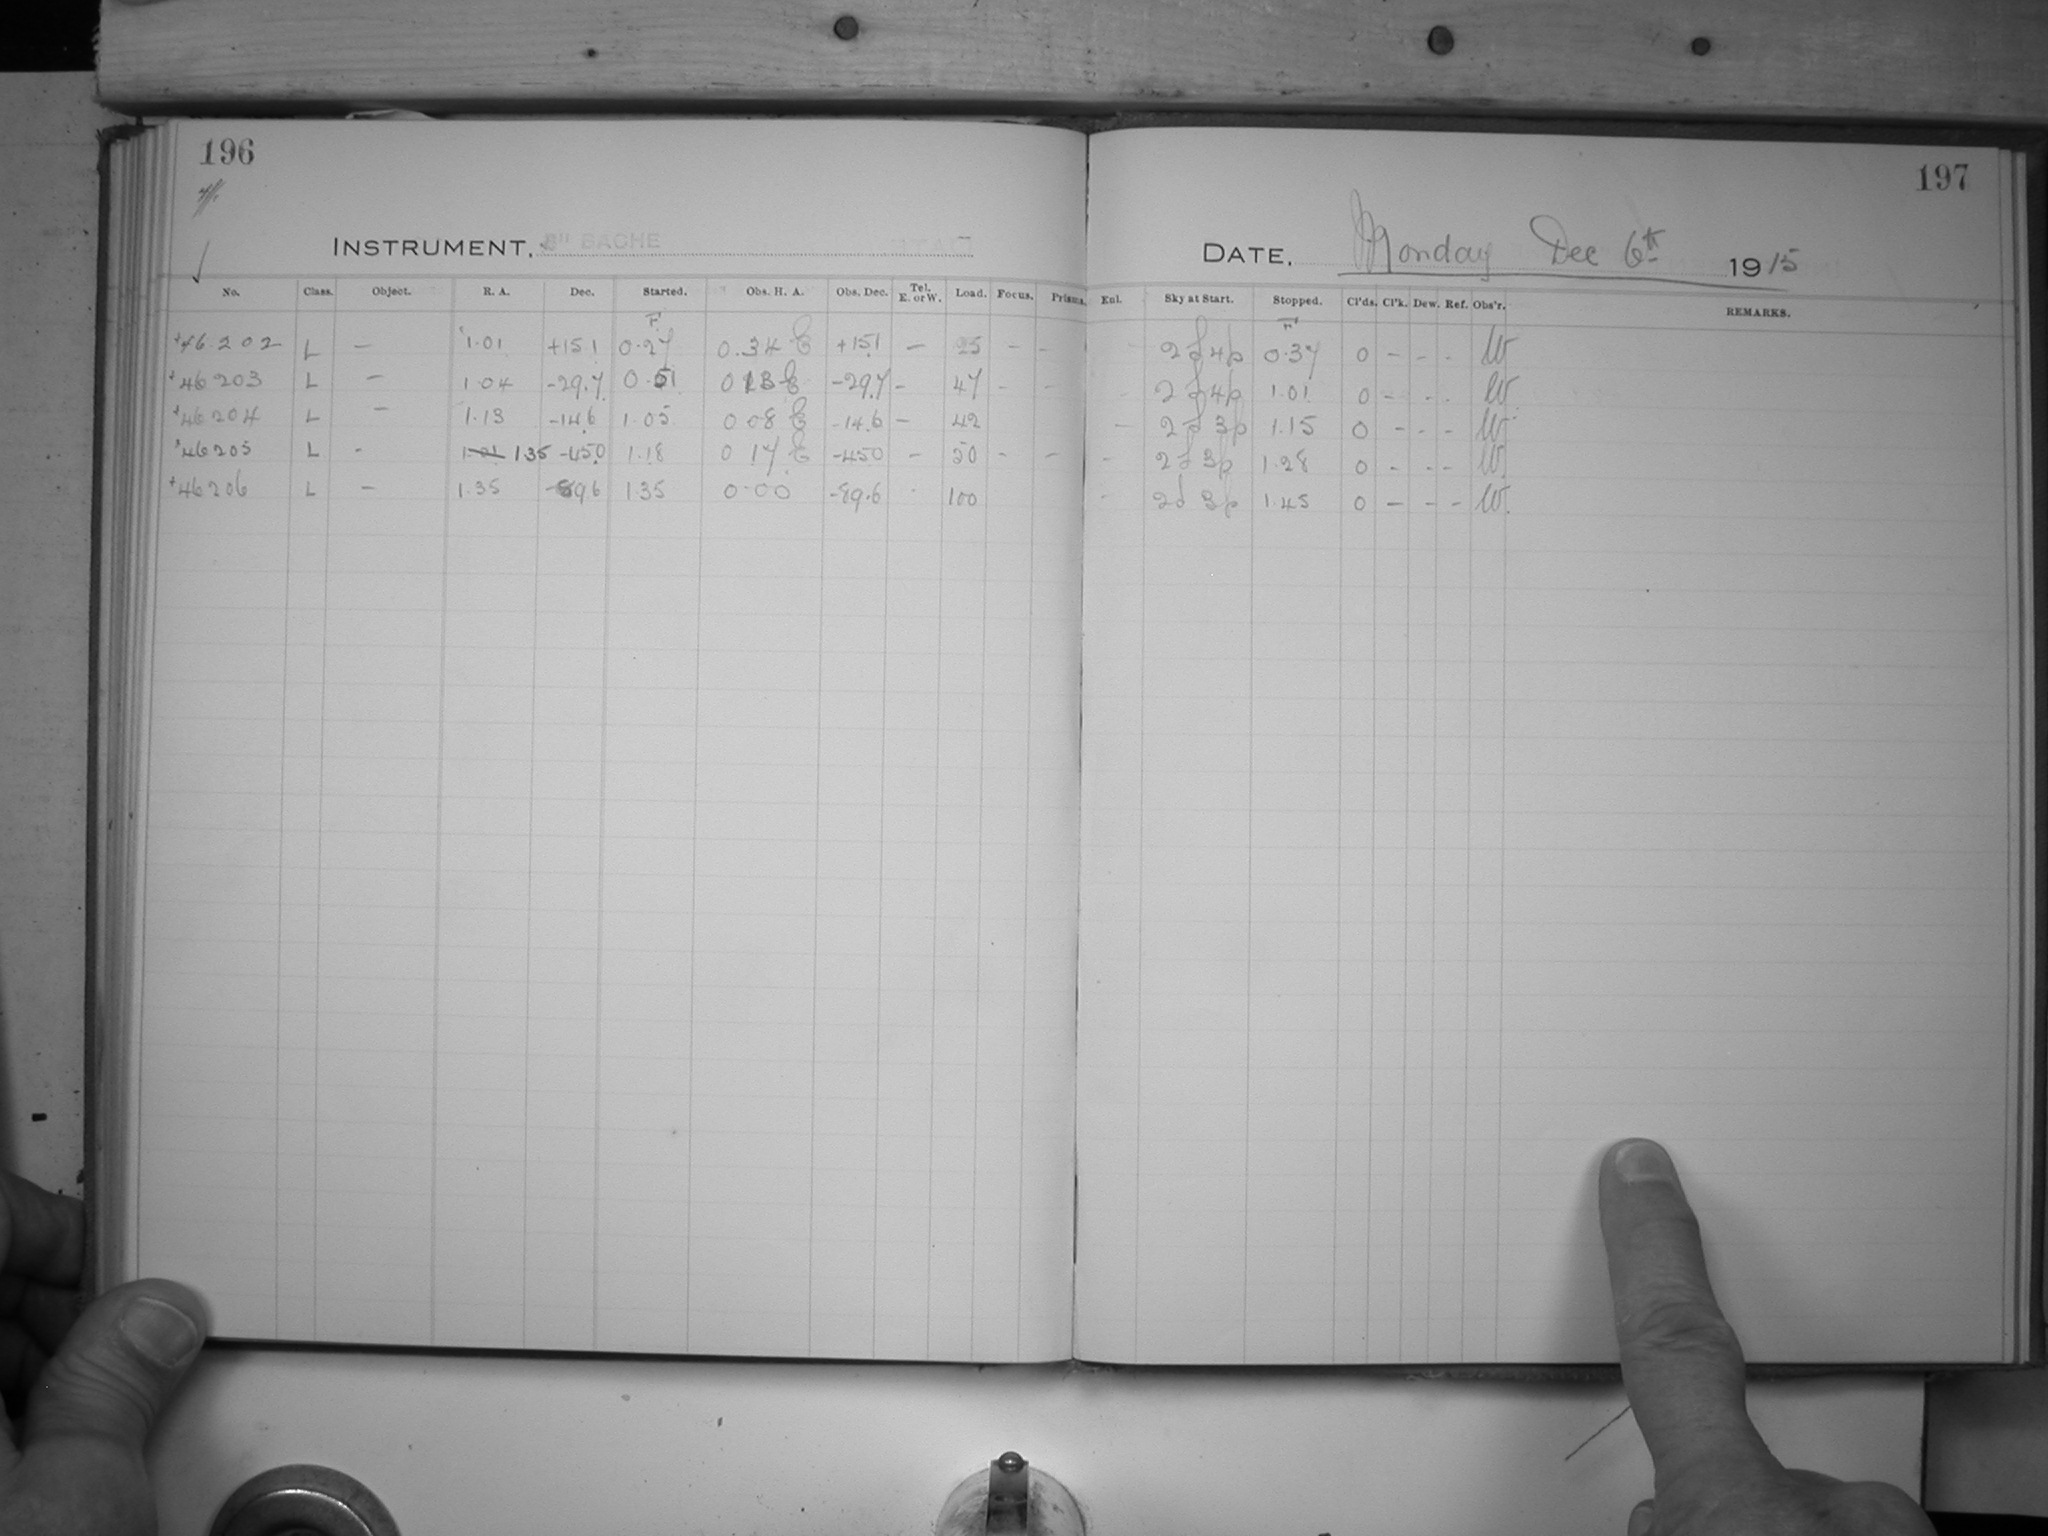 196
197
INSTRUMENT, 8" BACHE
DATE, Monday Dec 6th 1915
No. Class. Object. R. A. Dec. Started. Obs. H. A. Obs. Dec. Tel. E. or W. Load. Focus. Prisms. Enl. Sky at Start. Stopped. Cl'ds. Cl'k. Dew. Ref. Obs'r. REMARKS.
F F
+46202 L – 1.01 +15.1 0.27 0.34 E +15.1 – 25 – – – 0.37 0 – – – W
+46203 L – 1.04 -29.7 0.51 0 13 E -29.7 – 47 – – 1.01 0 – – – W
+46204 L – 1.13 -14.6 1.05 0 08 E -14.6 – 42 – 1.15 0 – – – W
+46205 L – 1.01 1 35 -45.0 1.18 0 17 E -45.0 – 50 – – – 1.28 0 – – – W.
+46206 L – 1.35 -89.6 1.35 0.00 -89.6 – 100 – 1.45 0 – – – W.